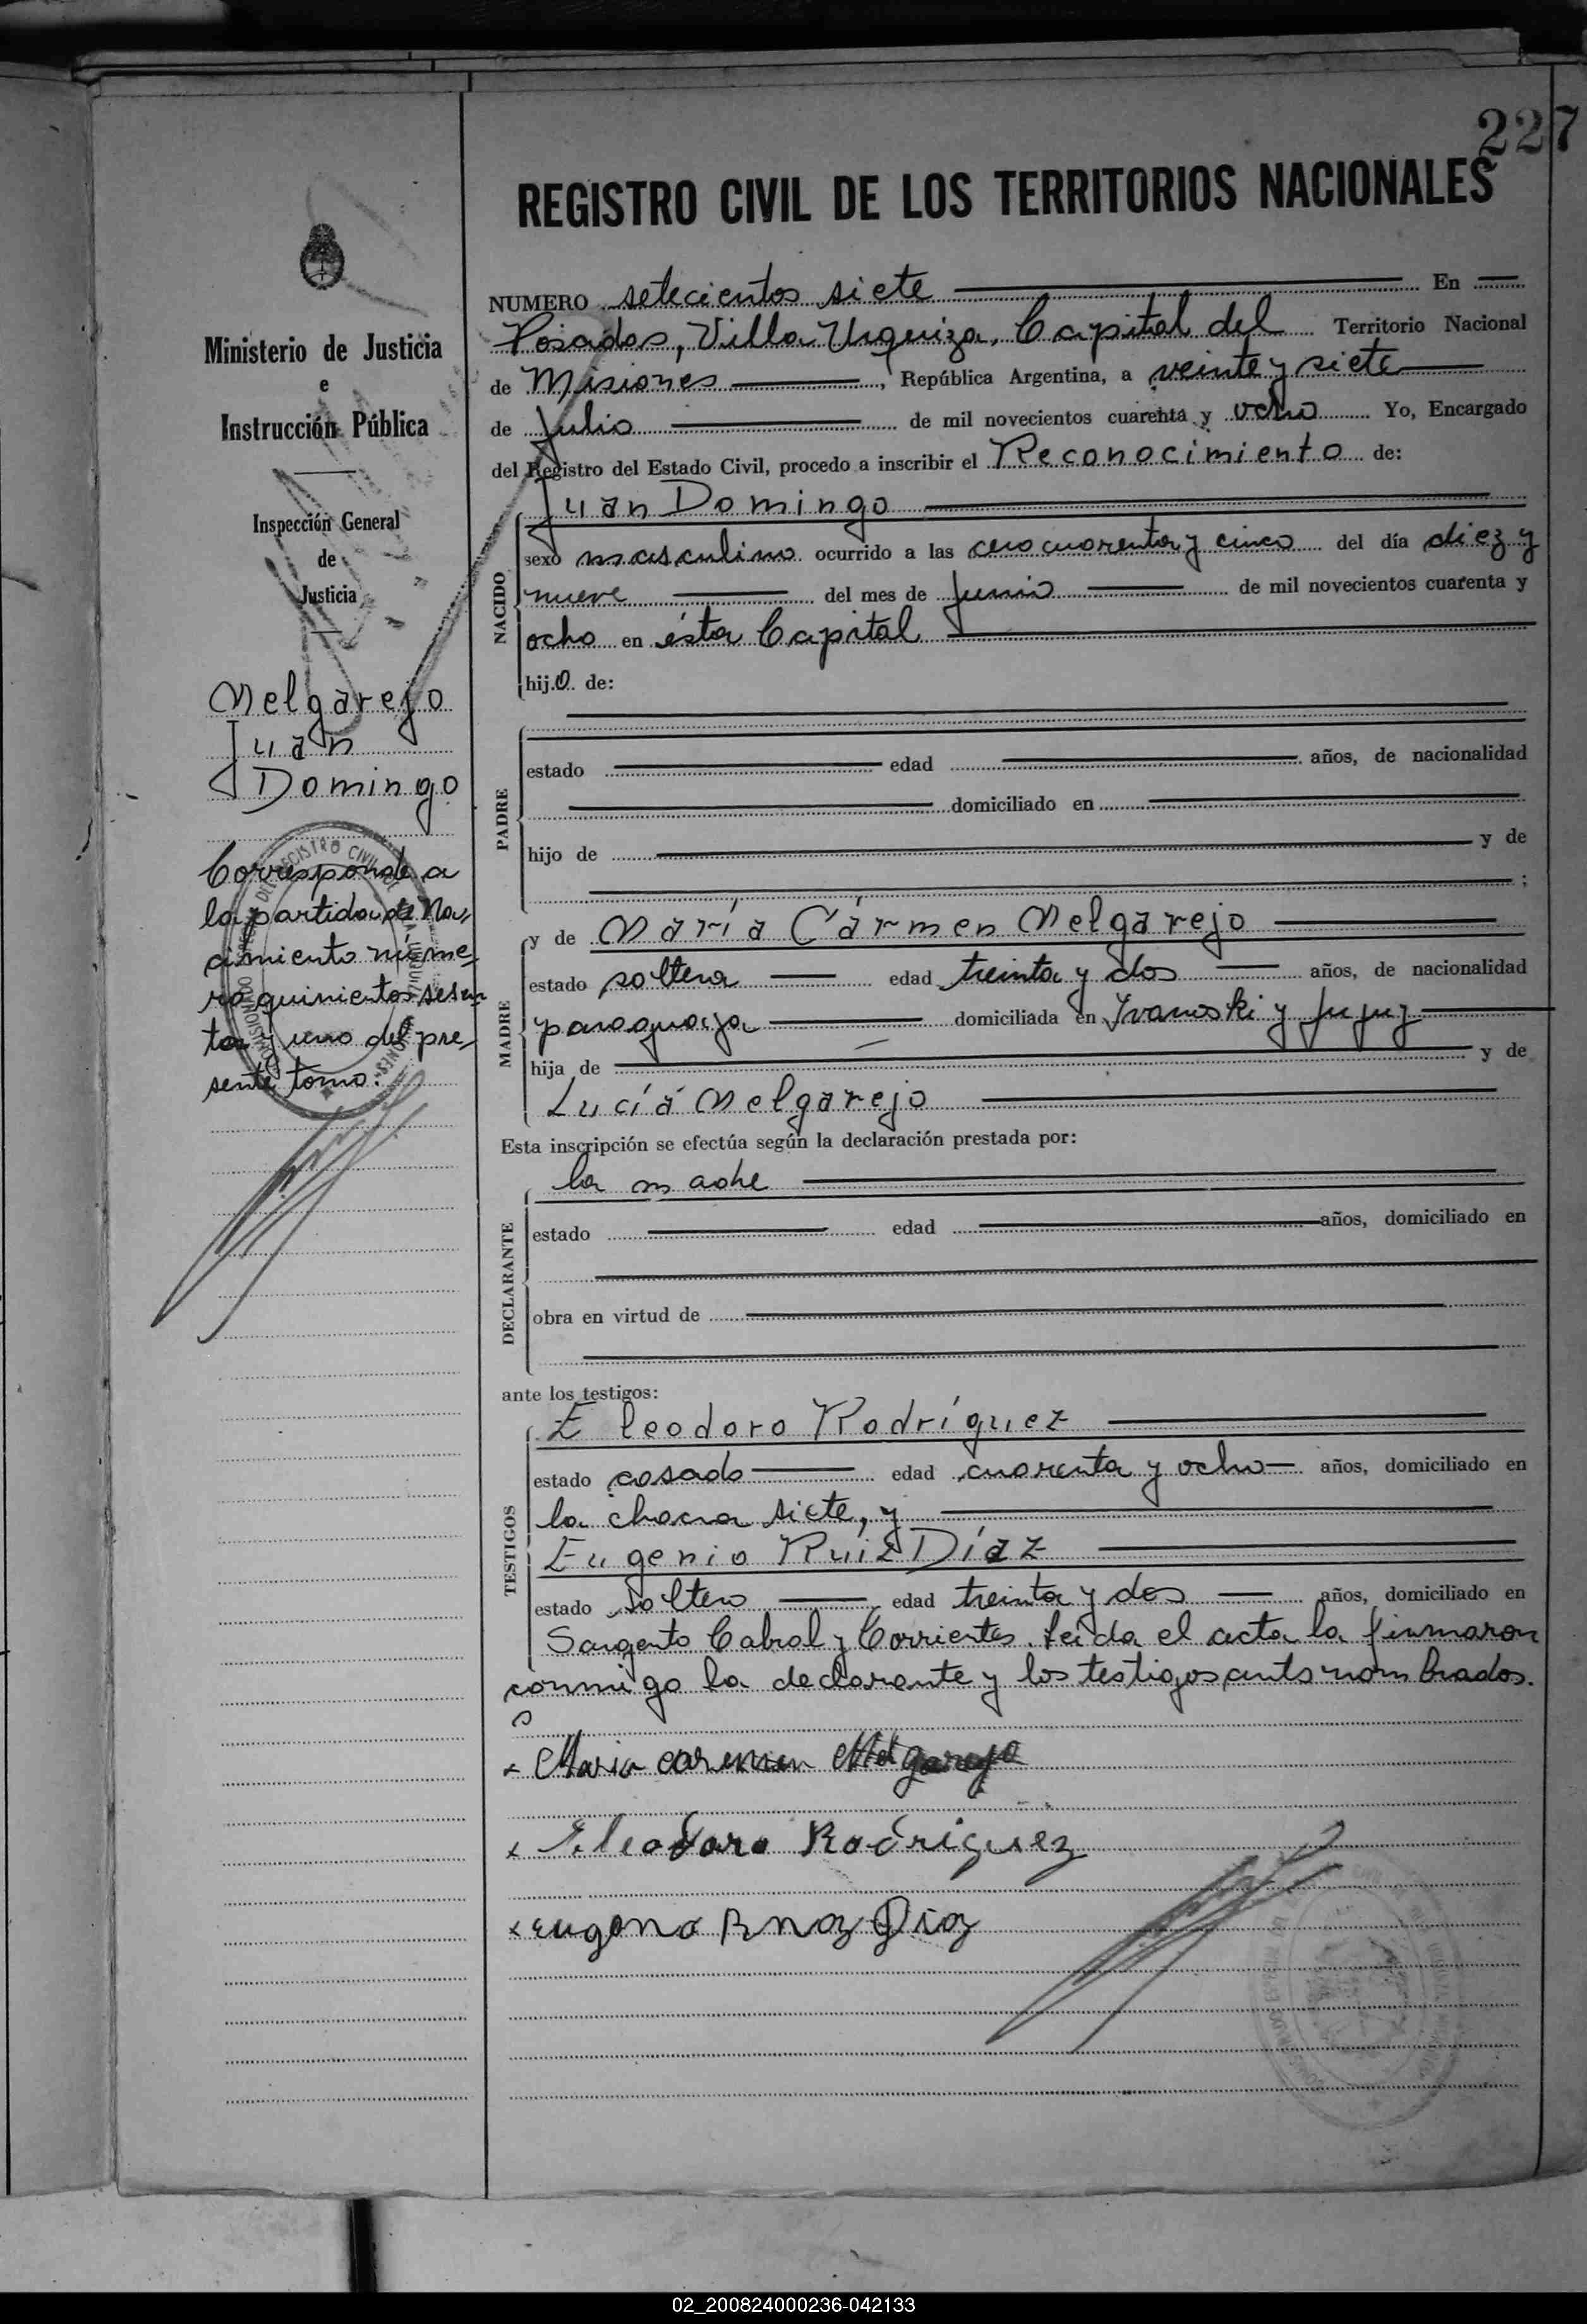 227
REGISTRO CIVIL DE LOS TERRITORIOS NACIONALES
Ministerio de Justicia
e
Instrucción Pública
Inspección General
de
Justicia
Melgarejo
Juan
Domingo
Corresponde a
la partida de Na-
cimiento núme-
ro quinientos sesen
ta y uno del pre-
sente tomo.
NUMERO setecientos siete En
Posadas, Villa Urquiza, Capital del Territorio Nacional
de Misiones, República Argentina, a veinte y siete
de Julio de mil novecientos cuarenta y ocho Yo, Encargado
del Registro del Estado Civil, procedo a inscribir el Reconocimiento de:
NACIDO
Juan Domingo
sexo masculino ocurrido a las cero cuarenta y cinco del día diez y
nueve del mes de Junio de mil novecientos cuarenta y
ocho en ésta Capital
hijo de:
PADRE
estado edad años, de nacionalidad
domiciliado en
hijo de y de
;
MADRE
y de María Cármen Melgarejo
estado soltera edad treinta y dos años, de nacionalidad
paraguaya domiciliada en Ivanoski y Jujuy
hija de y de
Lucía Melgarejo
Esta inscripción se efectúa según la declaración prestada por:
DECLARANTE
la madre
estado edad años, domiciliado en
obra en virtud de
ante los testigos:
TESTIGOS
Eleodoro Rodríguez
estado casado edad cuarenta y ocho años, domiciliado en
la chacra siete, y
Eugenio Ruiz Díaz
estado soltero edad treinta y dos años, domiciliado en
Sargento Cabral y Corrientes. Leida el acta la firmaron
conmigo la declarante y los testigos antes nombrados.
x Maria carmen Melgarejo
x Eleodoro Rodriguez
x eugeno Ruiz Diaz
02_200824000236-042133